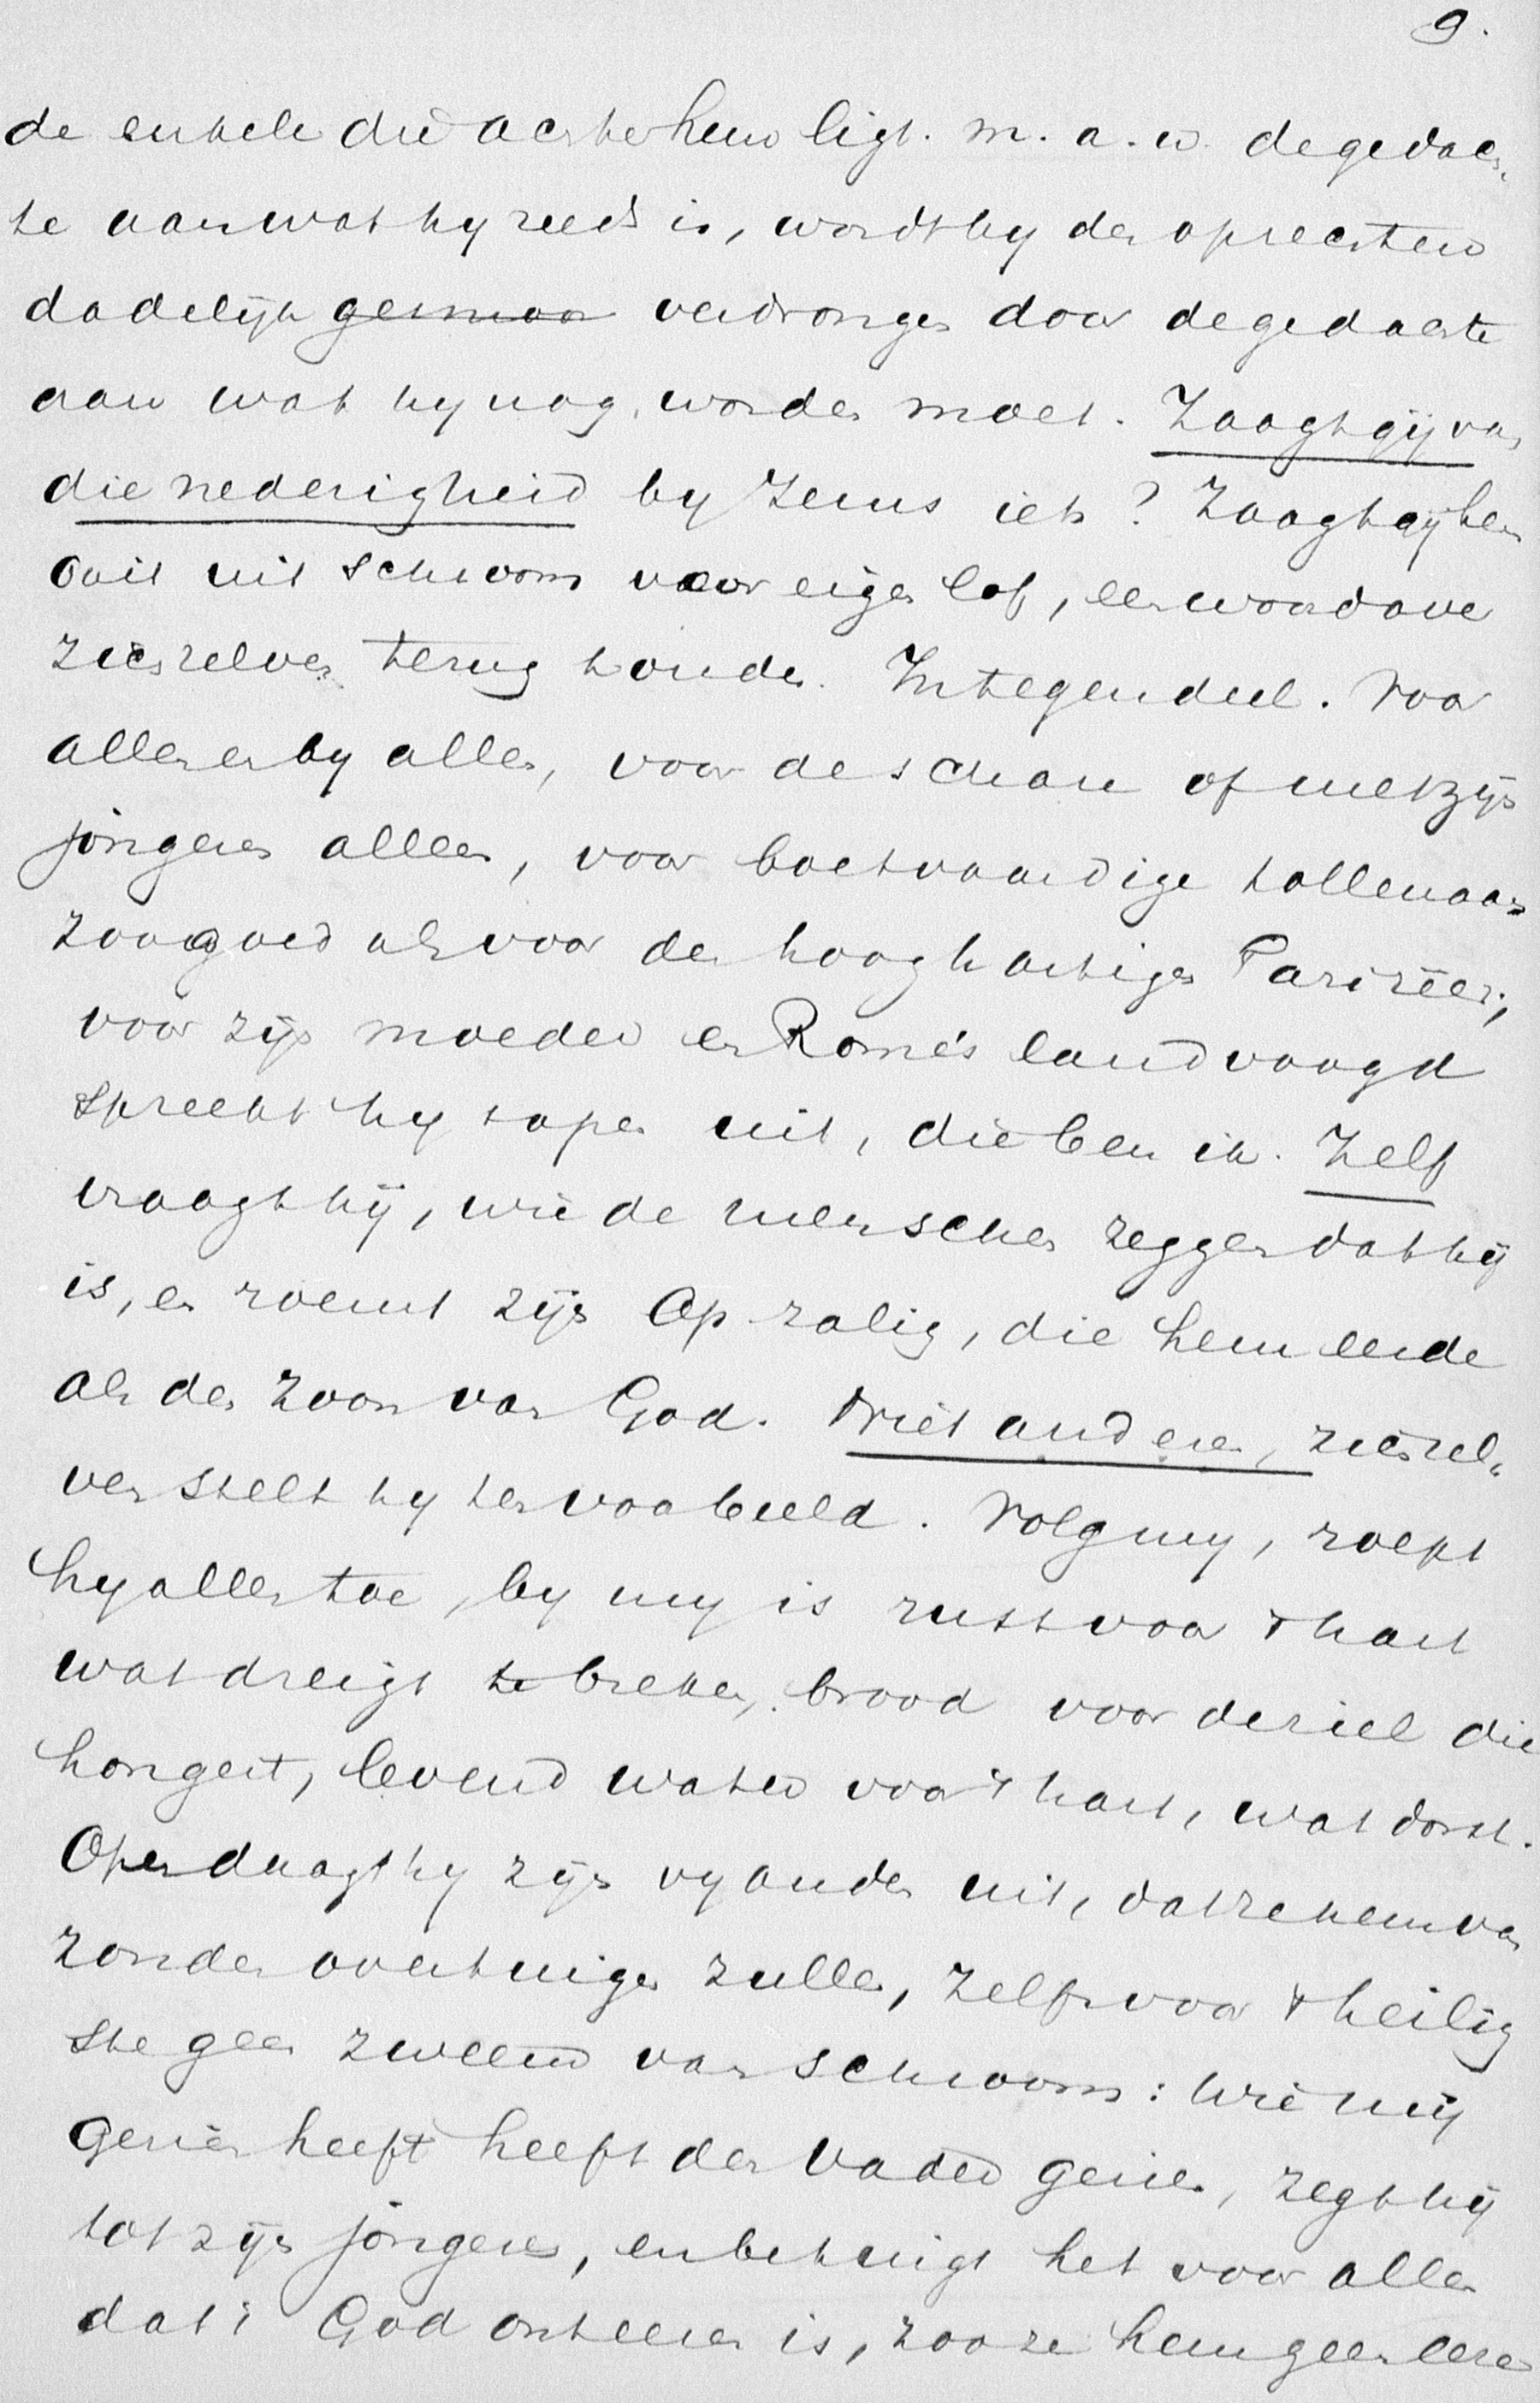 9.
de enkele die achter hem ligt. m. a. w. de gedach„
te aan wat hy reeds is, wordt by den oprechten
dadelijk verdrongen door de gedachte
aan wat hy nog worden moet. Zaagt gij van
die nederigheid by Jezus iets? Zaagt gij hem
ooit uit schroom voor eigen lof, een woord over
zichzelven terug houden. Integendeel. Voor
allen en by allen, voor de schare of met zijn
jongeren alleen, voor boetvaardige tollenaars
zoo goed als voor den hooghartigen Farizeër;
voor zijn moeder en Rome's landvoogd
spreekt hy 't open uit, die ben ik. Zelf
vraagt hij, wie de menschen zeggen dat hij
is, en roemt zijn Ap zalig, die hem eerde
als den Zoon van God. Niet anderen, zichzel„
ven stelt hy ten voorbeeld. Volg my, roept
hy allen toe, by my is rust voor 't hart
wat dreigt te breken, brood voor de ziel die
hongert, levend water voor 't hart, wat dorst.
Open daagt hy zijn vyanden uit, dat ze hem van
zonden overtuigen zullen, zelfs voor 't heilig
ste geen zweem van schroom: Wie mij
gezien heeft heeft den Vader gezien, zegt hij
tot zijn jongeren, en betuigt het voor allen
dat 't God onteeren is, zoo ze hem geen eere